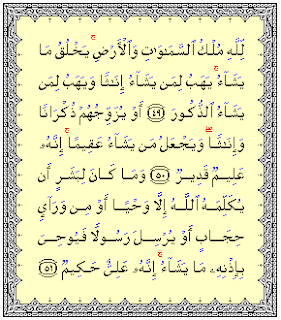 لِّلَّهِ مُلْكُ ٱلسَّمَـٰوَٰتِ وَٱلْأَرْضِ ۚ يَخْلُقُ مَا
يَشَآءُ ۚ يَهَبُ لِمَن يَشَآءُ إِنَـٰثًا وَيَهَبُ لِمَن
يَشَآءُ ٱلذُّكُورَ ﴿٤٩﴾ أَوْ يُزَوِّجُهُمْ ذُكْرَانًا
وَإِنَـٰثًا ۖ وَيَجْعَلُ مَن يَشَآءُ عَقِيمًا ۚ إِنَّهُۥ
عَلِيمٌ قَدِيرٌ ﴿٥٠﴾ وَمَا كَانَ لِبَشَرٍ أَن
يُكَلِّمَهُ ٱللَّهُ إِلَّا وَحْيًا أَوْ مِن وَرَآئِ
حِجَابٍ أَوْ يُرْسِلَ رَسُولًا فَيُوحِىَ
بِإِذْنِهِۦ مَا يَشَآءُ ۚ إِنَّهُۥ عَلِىٌّ حَكِيمٌ ﴿٥١﴾